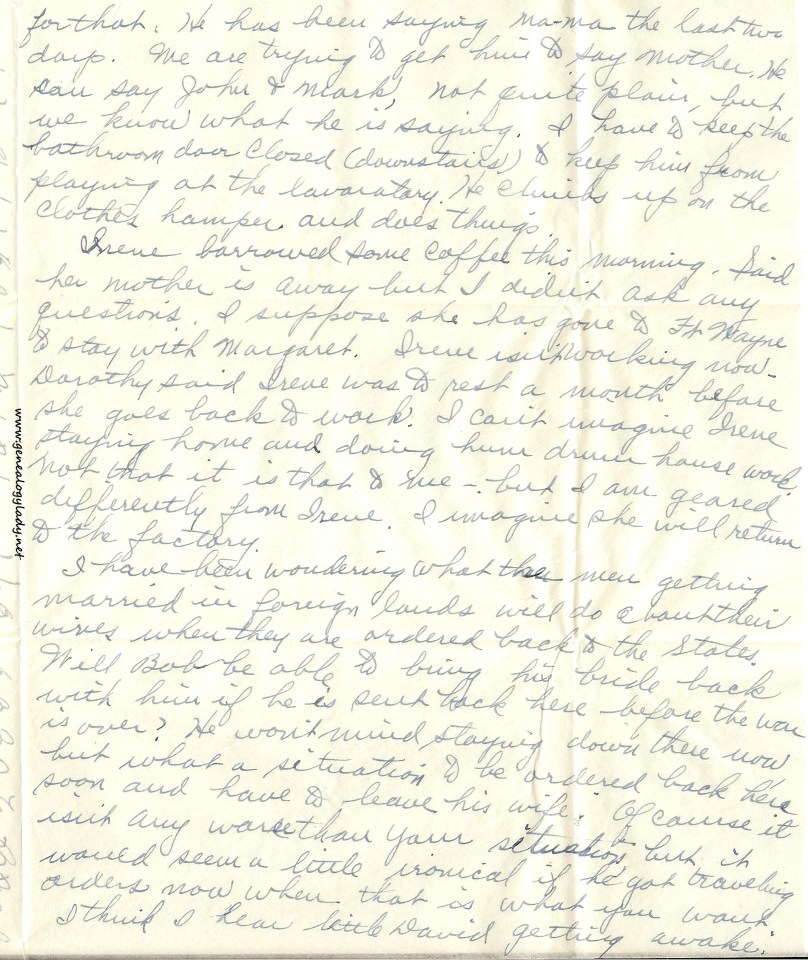 for that. He has been saying ma-ma the last two
days. We are trying to get him to say Mother. He
can say John & Mark, not quite plain, but
we know what he is saying. I have to keep the
bathroom door closed (downstairs) to keep him from
playing at the lavaratory. He climbs up on the
clothes hamper and does things.
Irene borrowed some coffee this morning. Said
her mother is away but I didn't ask any
questions. I suppose she has gone to Ft Wayne
to stay with Margaret. Irene isn't working now-
Dorothy said Irene was to rest a month before
she goes back to work. I can't imagine Irene
staying home and doing hum drum house work.
Not that it is that to me - but I am geared
differently from Irene. I imagine she will return
to the factory.
I have been wondering what the men getting
married in foreign lands will do about their
wives when they are ordered back to the States.
Will Bob be able to bring his bride back
with him if he is sent back here before the war
is over? He won't mind staying down there now
but what a situation to be ordered back here
soon and have to leave his wife. Of course it
isn't any worse than your situation, but it
would seem a little ironical if he got traveling
orders now when that is what you want.
I think I hear little David getting awake.
www.genealogylady.net